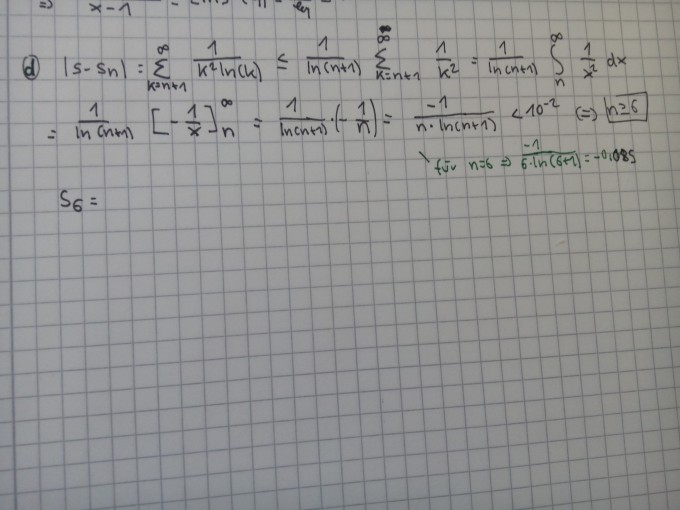 => x-1 =
d) |s-sn| = ∞ Σ k=n+1 1/(k² ln(k)) ≤ 1/ln(n+1) ∞ Σ k=n+1 1/k² = 1/ln(n+1) ∞ ∫ n 1/x² dx
= 1/ln(n+1) [-1/x] ∞ n = 1/ln(n+1) · (-1/n) = -1/(n·ln(n+1)) < 10^-2 (=) n≥6
für n=6 => -1/(6·ln(6+1)) = -0,085
S6 =